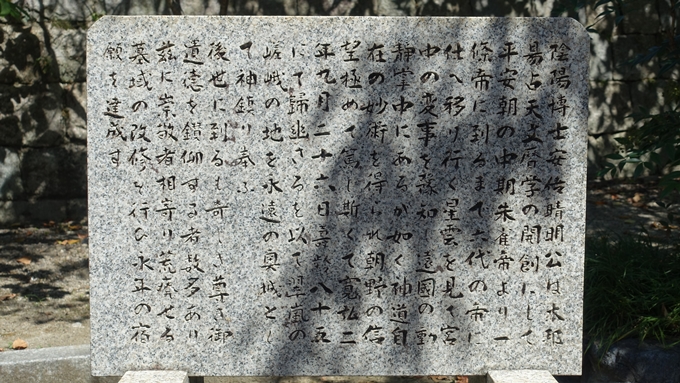 陰陽博士安倍晴明公は本邦
易占天文暦学の開創にして
平安朝の中期朱雀帝より一
條帝に到るまで六代の帝に
仕へ移り行く星雲を見て宮
中の変事を豫知し遠國の動
静掌中にあるが如く神道自
在の妙術を得られ朝野の信
望極めて篤し斯くて寛弘二
年九月二十六日喜齢八十五
にて歸幽さるを以て翠嵐の
嵯峨の地を永遠の奥城とし
て神鎮り奉ふ
後世に到るも奇しき尊き御
遺徳を鑚仰する者数多あり
茲に崇敬者相寄り荒廃せる
墓域の改修を行ひ永年の宿
願を達成す